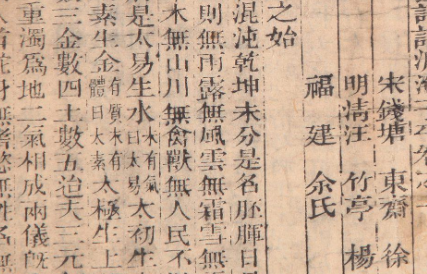 宋錢塘 東齋 徐
明清江 竹亭 楊
福建 余氏
之始
混沌乾坤未分是名胚腪日月
則無雨露無風雲無霜雪無
木無山川無禽獸無人民不
是太易生水未有氣曰太易太初生
素生金有質未有體曰太素太極生土
三金數四土數五治天三元
重濁爲地二氣相成兩儀旣